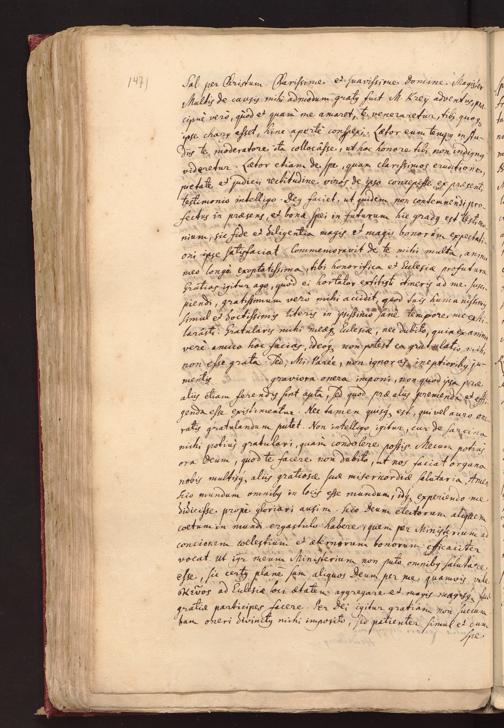 147
Sal. per Christum. Clarissime et suavissime Domine Magister
Multis de causis mihi admodum gratus fuit M. Krey adventus, præ-
cipue vero, quod et quam me amaret, te veneraretur, tibi quoque
ipse charus esset, hinc aperte conspexi. Lætor eum tempus in stu-
diis te moderatore ita collocasse, ut hoc honore tibi non indignus
videretur. Lætor etiam de spe, quam clarissimos eruditione,
pietate et judicii rectitudine viros de ipso concepisse ex præsenti
testimonio intelligo. Deus faciet, ut quidem non contemnendi pro-
fectus in præsens, et bonæ spei in futurum hic gradus est testimo-
nium, sic fide et diligentia magis et magis bonorum expectati-
oni ipse satisfaciat. Commemoravit de te mihi multa, animo
meo longe exoptatissima, tibi honorifica et Ecclesiæ profutura
Gratias igitur ago, quod ei hortator extitisti itineris ad me susci-
piendi, gratissimum vero mihi accidit, quod tuis humanissimis
simul et doctissimis literis in ipsissimo sane tempore me exhi-
larasti. Gratularis mihi meæque Ecclesiæ, nec dubito, quin ex animo
vere amico hoc facias, ideoque non potest ea gratulatio mihi
non esse grata. Sed, Mi Parée, non ignoras ineptioribus ju-
mentis graviora onera imponi, non quod ipsa præ
aliis etiam ferendis sint apta, sed quod præ aliis premenda et affli-
genda esse existimentur. Nec tamen quisquam est, qui vel auro one-
ratis gratulandum putet. Non intelligo igitur, cur de sarcina
mihi potius gratulari, quam condolere possis. Mecum potius
ora Deum, quod te facere non dubito, ut nos faciat organa
nobis multisque aliis gratiosæ suæ misericordiæ salutaria. Amen
Scio mundum omnibus in locis esse mundum, idque experiendo me
didicisse prope gloriari ausim. Scio Deum electorum aliquem
cœtum in mundi ergastulo habere, quem per Ministerium ad
concionem cœlestium et æternorum bonorum efficaciter
vocat. Ut igitur meum Ministerium non puto omnibus salutare
esse, sic certus plane sum aliquos Deum per me quamvis
σκεῦος ad Ecclesiæ suæ cœtum aggregare et magis magisque suæ
gratiæ participes facere. Per Dei igitur gratiam non succum-
bam oneri divinitus mihi imposito, sed patienter simul et cum
spe